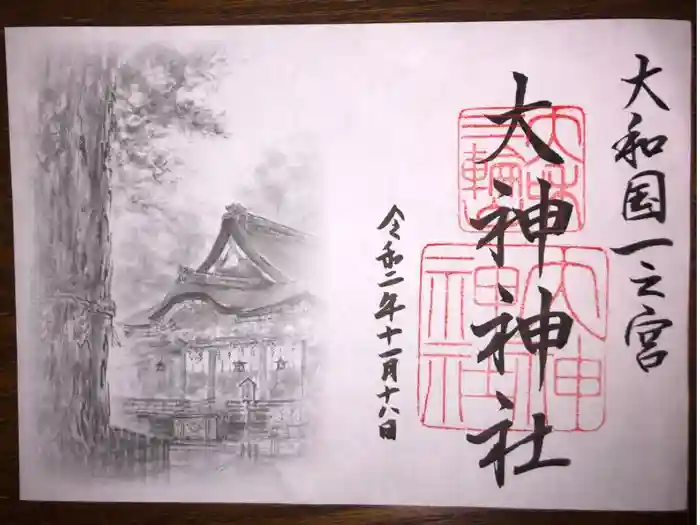 大和国一之宮
大神神社
令和二年十一月十八日
大神神社